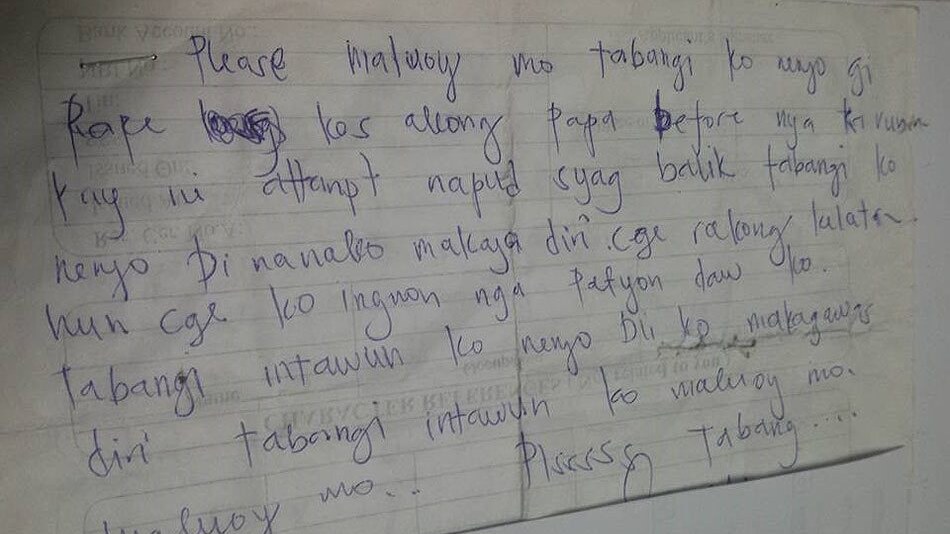 Please maluoy mo tabangi ko nenyo gi
Rape kos akong papa before nya
kay ni attampt napud syag balik tabangi ko
nenyo Di nanako makaya diri. cge rakong
hun cge ko ingnon nga Patyon daw ko.
Tabangi intawun ko nenyo Dli ko makagawas
diri tabangi intawun ko maluoy mo.
maluoy mo... Plsssss Tabang...
CHARACTER REFERENCES (Not related to you)